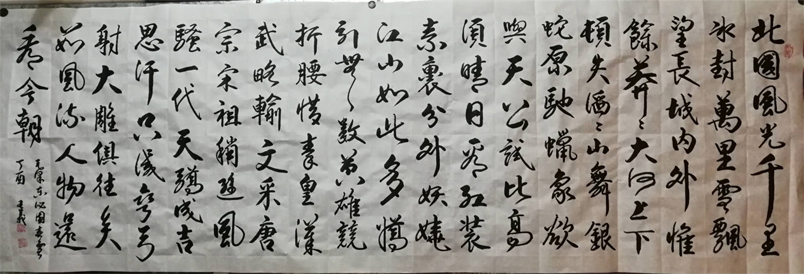 北國風光千里
冰封萬里雪飄
望長城内外惟
餘莽〻大河上下
頓失滔〻山舞銀
蛇原馳蠟象欲
與天公試比高
須晴日看紅装
素裹分外妖嬈
江山如此多嬌
引無數英雄競
折腰惜秦皇漢
武略輸文采唐
宗宋祖稍遜風
騷一代天驕成吉
思汗只識彎弓
射大雕俱往矣
数風流人物還
看今朝
毛澤東沁園春雪
丁酉